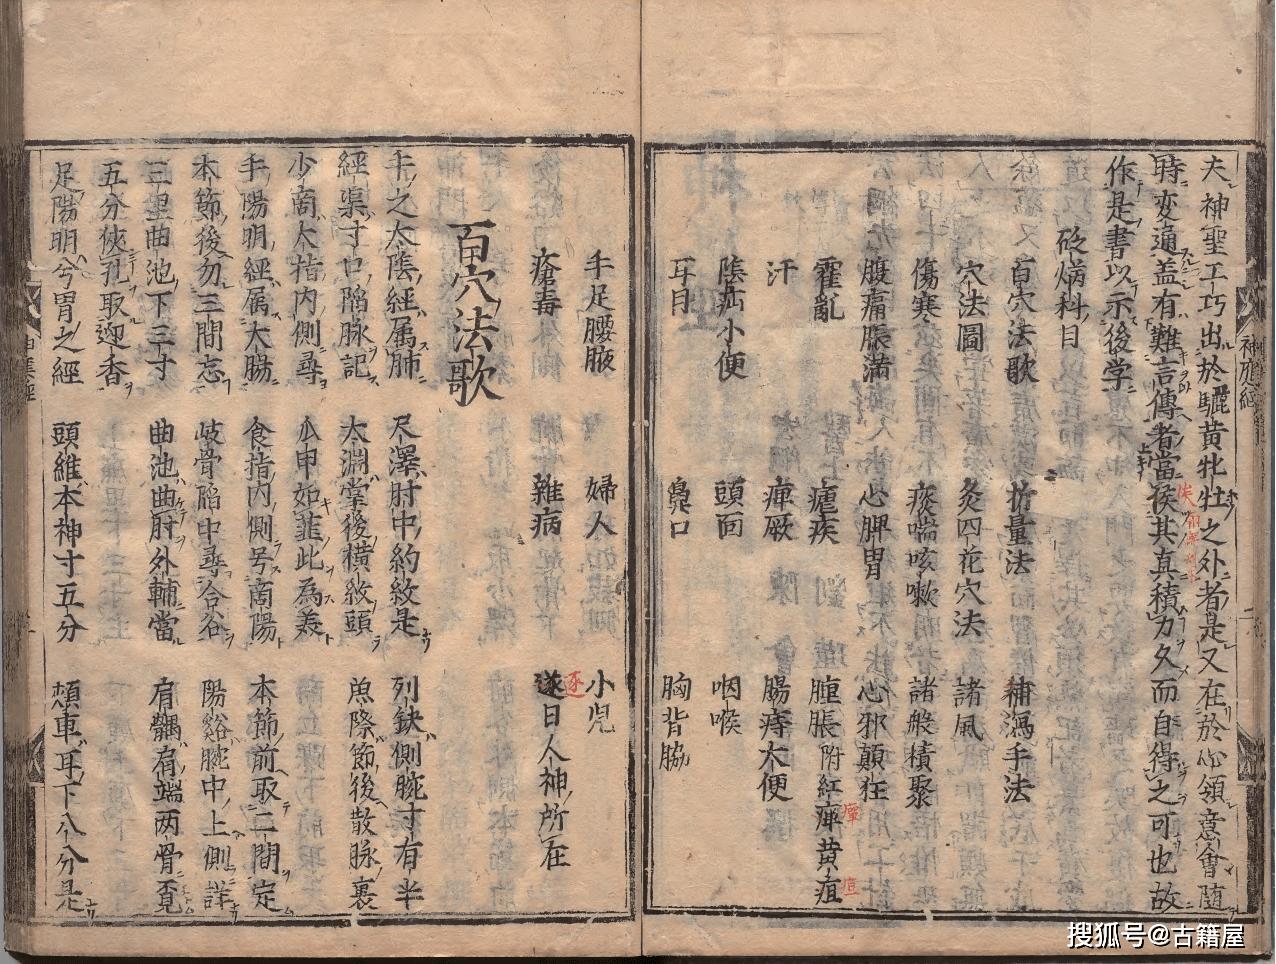 夫神聖工巧出於驪黄牝牡之外者是又在於心領意會隨
時変通盖有難言傳者當俟其真積力久而自得之可也故
作是書以示後学
砭焫科目
百穴法歌 折量法 補瀉手法
穴法圖 灸四花穴法 諸風
傷寒 痰喘咳嗽 諸般積聚
腹痛脹满 心脾胃 心邪顛狂
霍亂 瘧疾 腫脹附紅疸黄疽
汗 痺厥 腸痔大便
陰疝小便 頭面 咽喉
耳目 鼻口 胸背脇
手足腰腋 婦人 小兒
瘡毒 雜病 遂日人神所在
百穴法歌
手之太陰經属肺 尺澤肘中約紋是 列缺側腕寸有半
經渠寸口陷脉記 太淵掌後横紋頭 魚際節後散脉裏
少商大指内側尋 爪甲如韮此為美
手陽明經属大腸 食指内側号商陽 本節前取二間定
本節後勿三間忘 岐骨陷中尋合谷 陽谿腕中上側詳
三里曲池下三寸 曲池曲肘外輔當 肩髃肩端两骨覔
五分俠孔取迎香
足陽明兮胃之經 頭維本神寸五分 頰車耳下八分是
神應經
二
搜狐号@古籍屋